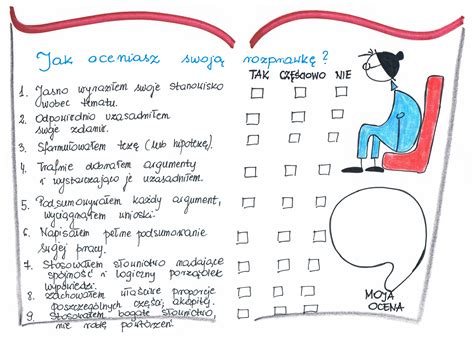 Jak oceniasz swoją rozprawkę?
TAK CZĘŚCIOWO NIE
1. Jasno wyraziłem swoje stanowisko
wobec tematu.
2. Odpowiednio uzasadniłem
swoje zdanie.
3. Sformułowałem tezę (lub hipotezę).
4. Trafnie dobrałem argumenty
i wystarczająco je uzasadniłem.
5. Podsumowywałem każdy argument,
wyciągnąłem wnioski.
6. Napisałem pełne podsumowanie
swojej pracy.
7. Stosowałem słownictwo nadające
spójność i logiczny porządek
wypowiedzi.
8. Zachowałem właściwe proporcje
poszczególnych części, akapitów.
9. Stosowałem bogate słownictwo,
nie robię powtórzeń.
MOJA
OCENA